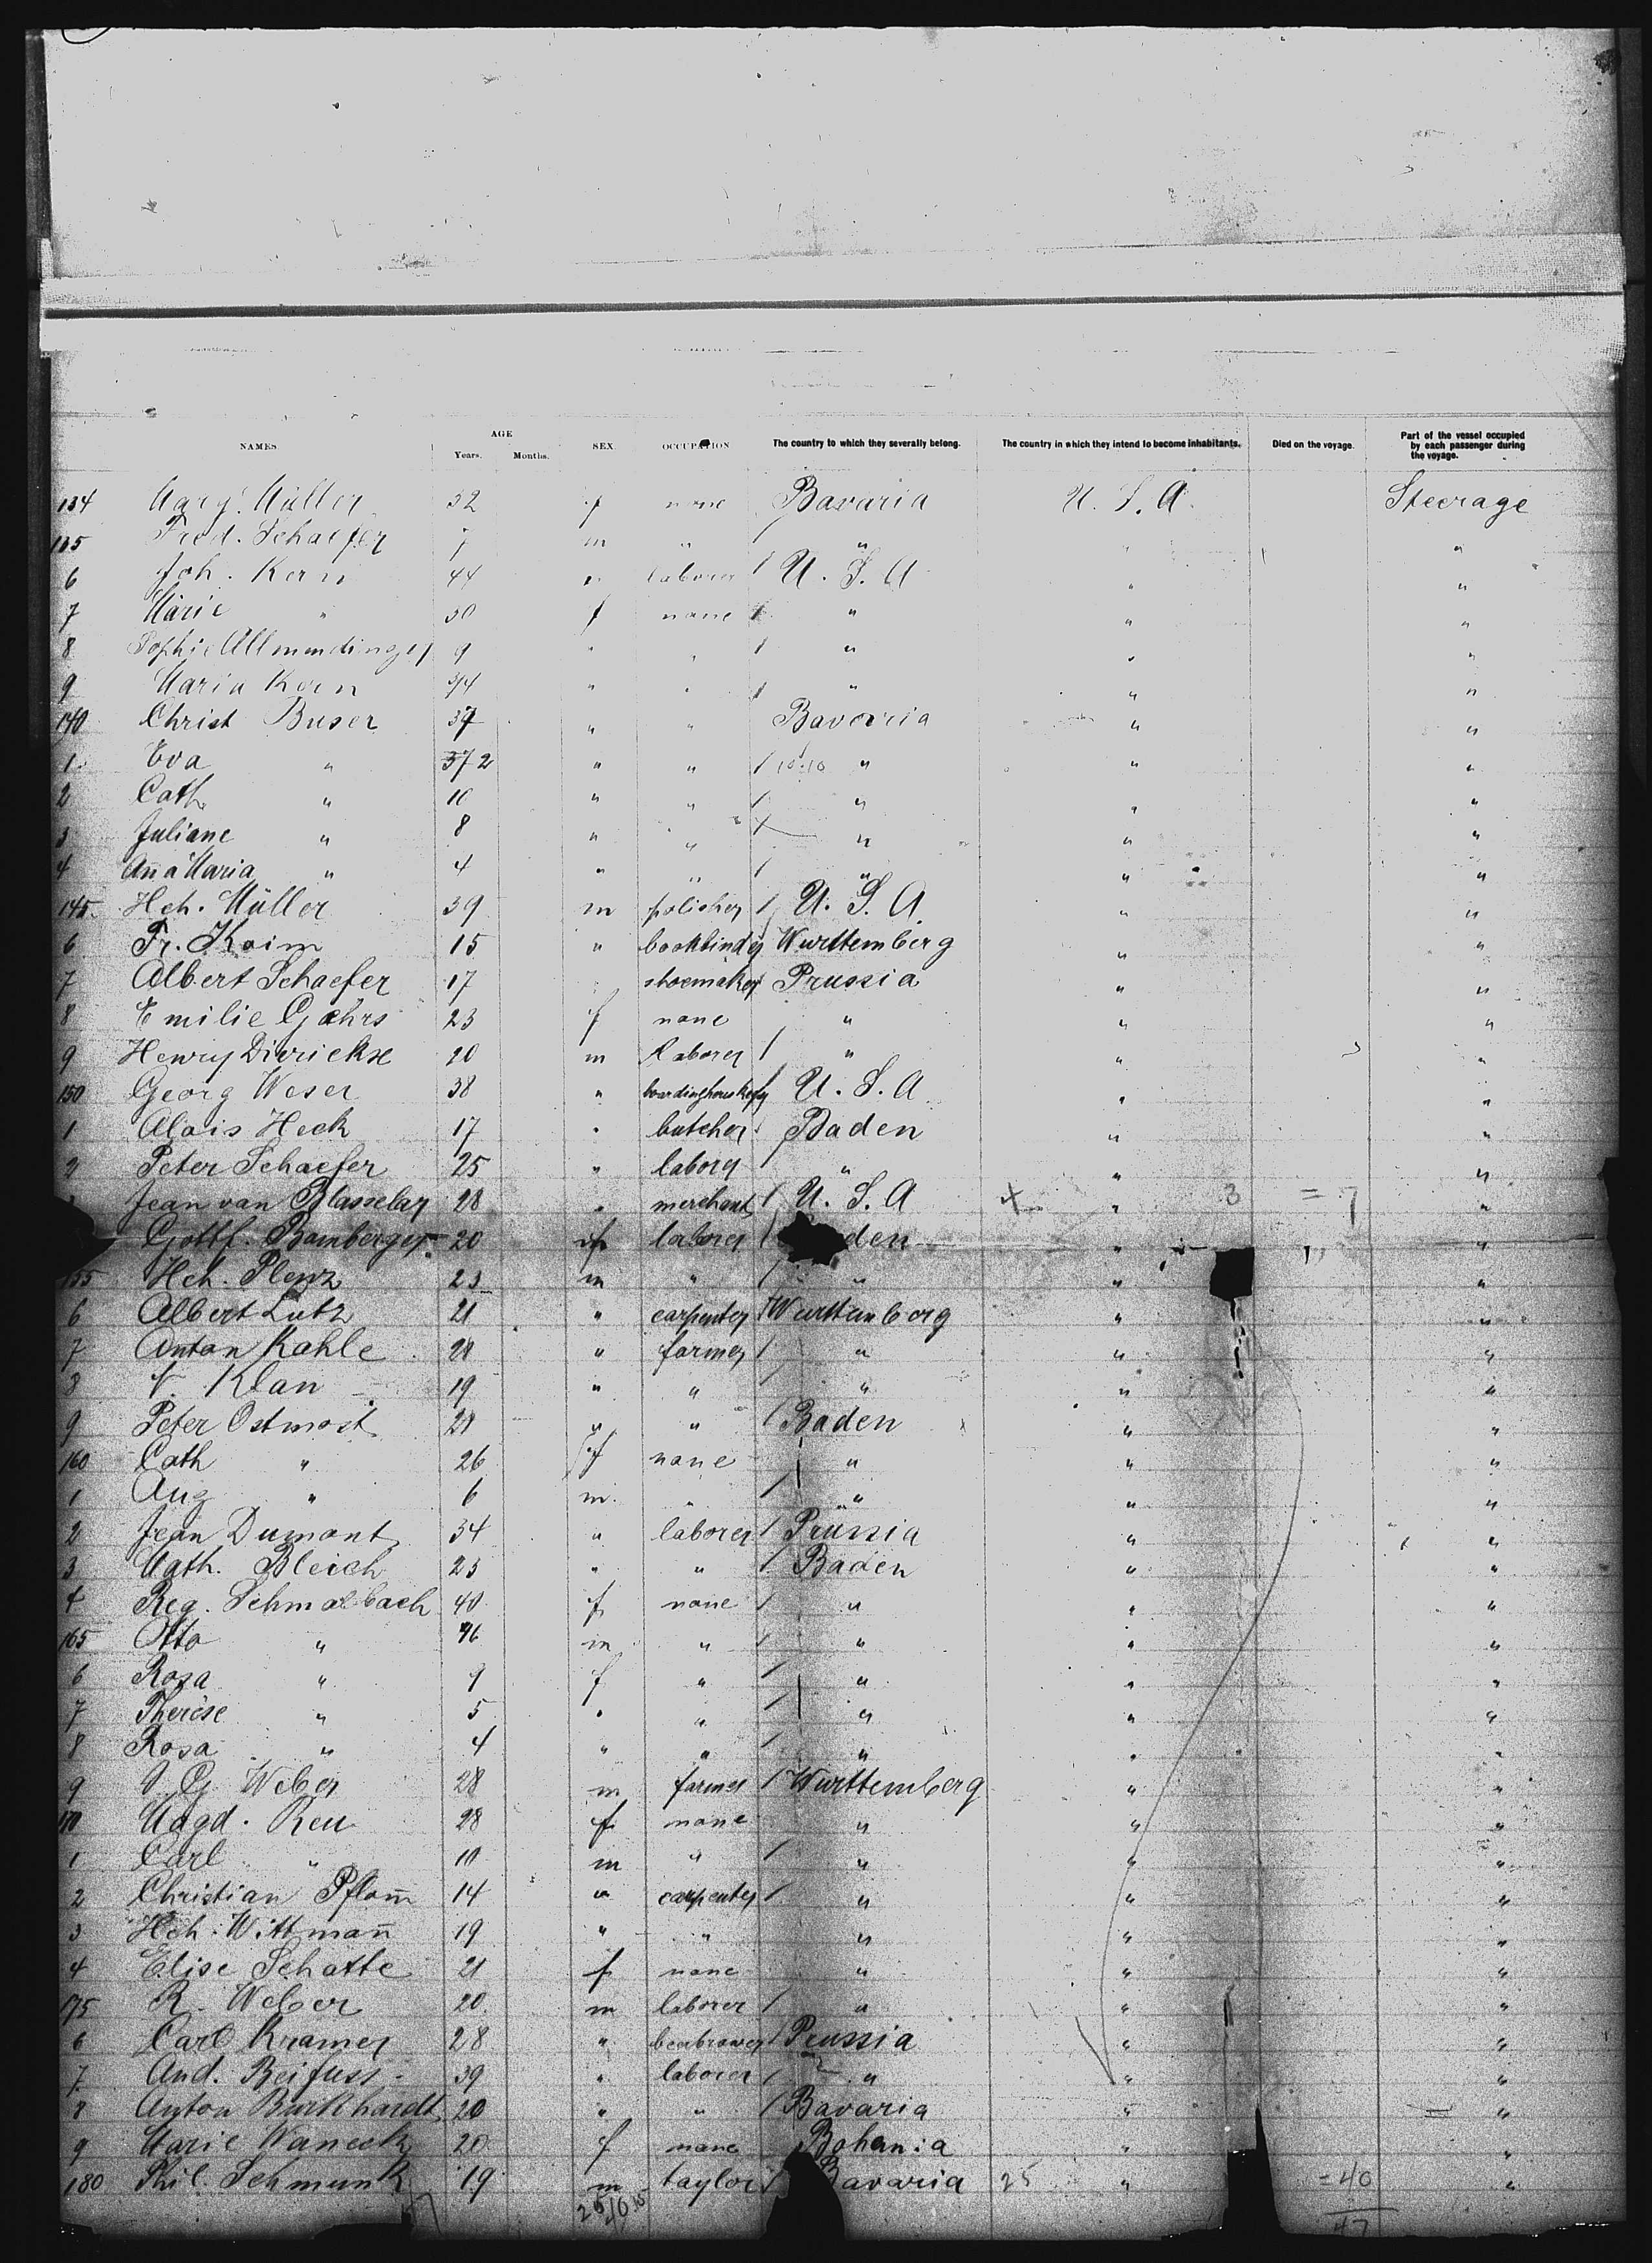 NAMES. AGE Years. Months. SEX OCCUPATION The country to which they severally belong. The country in which they intend to become inhabitants. Died on the voyage. Part of the vessel occupied by each passenger during the voyage.
134 Mary Müller 32 f none Bavaria U. S. A. Steerage
135 Fred. Schaefer m " " " "
6 Joh. Kern 44 " laborer U. S. A " "
7 Marie " 30 f none " " "
8 Sophie Allmendinger 9 " " " " "
9 Maria Kern 3/4 " " " " "
140 Christ Buser 37 " " Bavaria " "
1 Eva " " " " " "
2 Cath " 10 " " " " "
3 Juliane " 8 " " " " "
4 An̄a Maria " 4 " " " " "
145 Hch. Müller 39 m polisher U. S. A. " "
6 Fr. Kaim 15 " bookbinder Wurttemberg " "
7 Albert Schaefer 17 " shoemaker Prussia " "
8 Emilie Gehrs 23 f none " " "
9 Henry Dirickse 20 m laborer " " "
150 Georg Weser 38 " boardinghouskeep U. S. A. " "
1 Alois Heck 17 " butcher Baden " "
2 Peter Schaefer 25 " laborer " " "
Jean van Blasselar 28 " merchant U. S. A " 3 = 7 "
Gottf. Bamberger 20 laborer den " "
155 Hch. Plenz 23 m " " " "
6 Albert Lutz 21 " carpenter Wurttemberg " "
7 Anton Kahle 28 " farmer " " "
8 Klan 19 " " " " "
9 Peter Ostmost 28 " " Baden " "
160 Cath " 26 f none " " "
1 Aug " 6 m " " " "
2 Jean Dumont 34 " laborer Prussia " "
3 Math. Bleich 25 " " Baden " "
4 Reg. Schmalbach 40 f none " " "
165 Otto " m " " " "
6 Rosa " 9 f " " " "
7 Therese " 5 " " " " "
8 Rosa " 4 " " " " "
9 G Weber 28 m farmer Wurttemberg " "
170 Magd. Reu 28 f none " " "
1 Carl " 10 m " " " "
2 Christian Pflom̄ 14 " carpenter " " "
3 Hch. Wittman̄ 19 " " " " "
4 Elise Schatte 21 f none " " "
175 R. Weber 20 m laborer " " "
6 Carl Kramer 28 " beerbrewer Prussia " "
7 And. Beifuss 39 " laborer " " "
8 Anton Burkhardt 20 " " Bavaria " "
9 Marie Waneck 20 f none Bohemia " "
180 Phil. Schmunk 19 m taylor Bavaria 25 " = 40 "
47